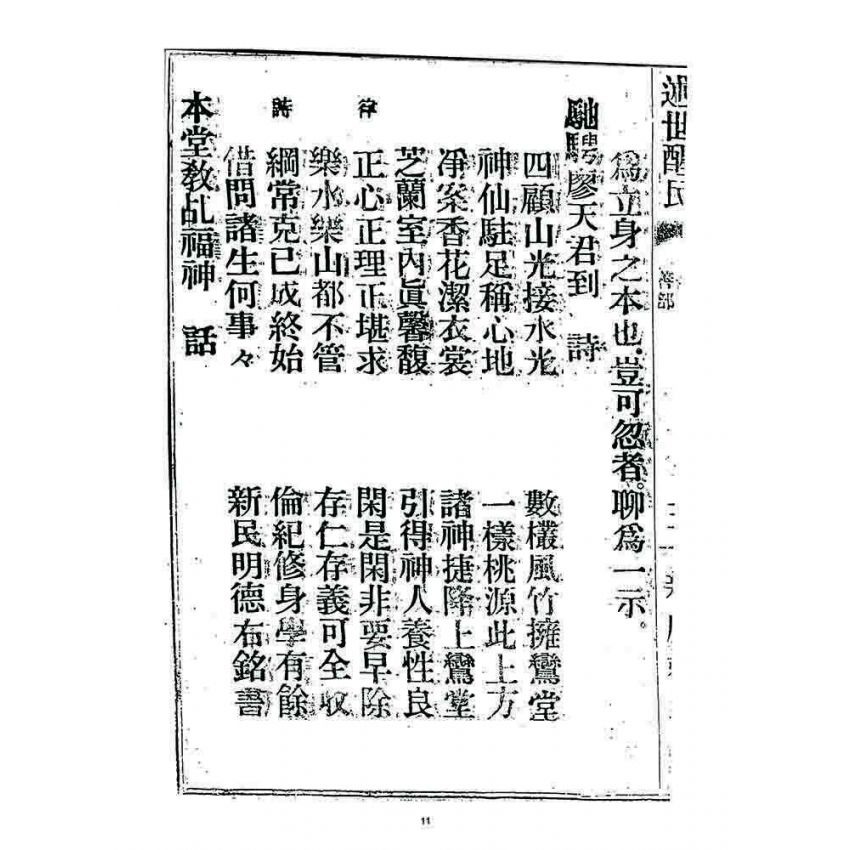 醒民
為立身之本也、豈可忽者。聊為一示。
馳騁廖天君到　詩
四顧山光接水光　數欉風竹擁鸞堂
神仙駐足稱心地　一樣桃源此上方
凈案香花潔衣裳　諸神捷降上鸞堂
芝蘭室內眞馨馥　引得神人養性良
律
正心正理正堪求　閑是閑非要早除
樂水樂山都不管　存仁存義可全收
詩
綱常克己成終始　倫紀修身學有餘
借問諸生何事々　新民明德布銘書
本堂教乩福神　話
11